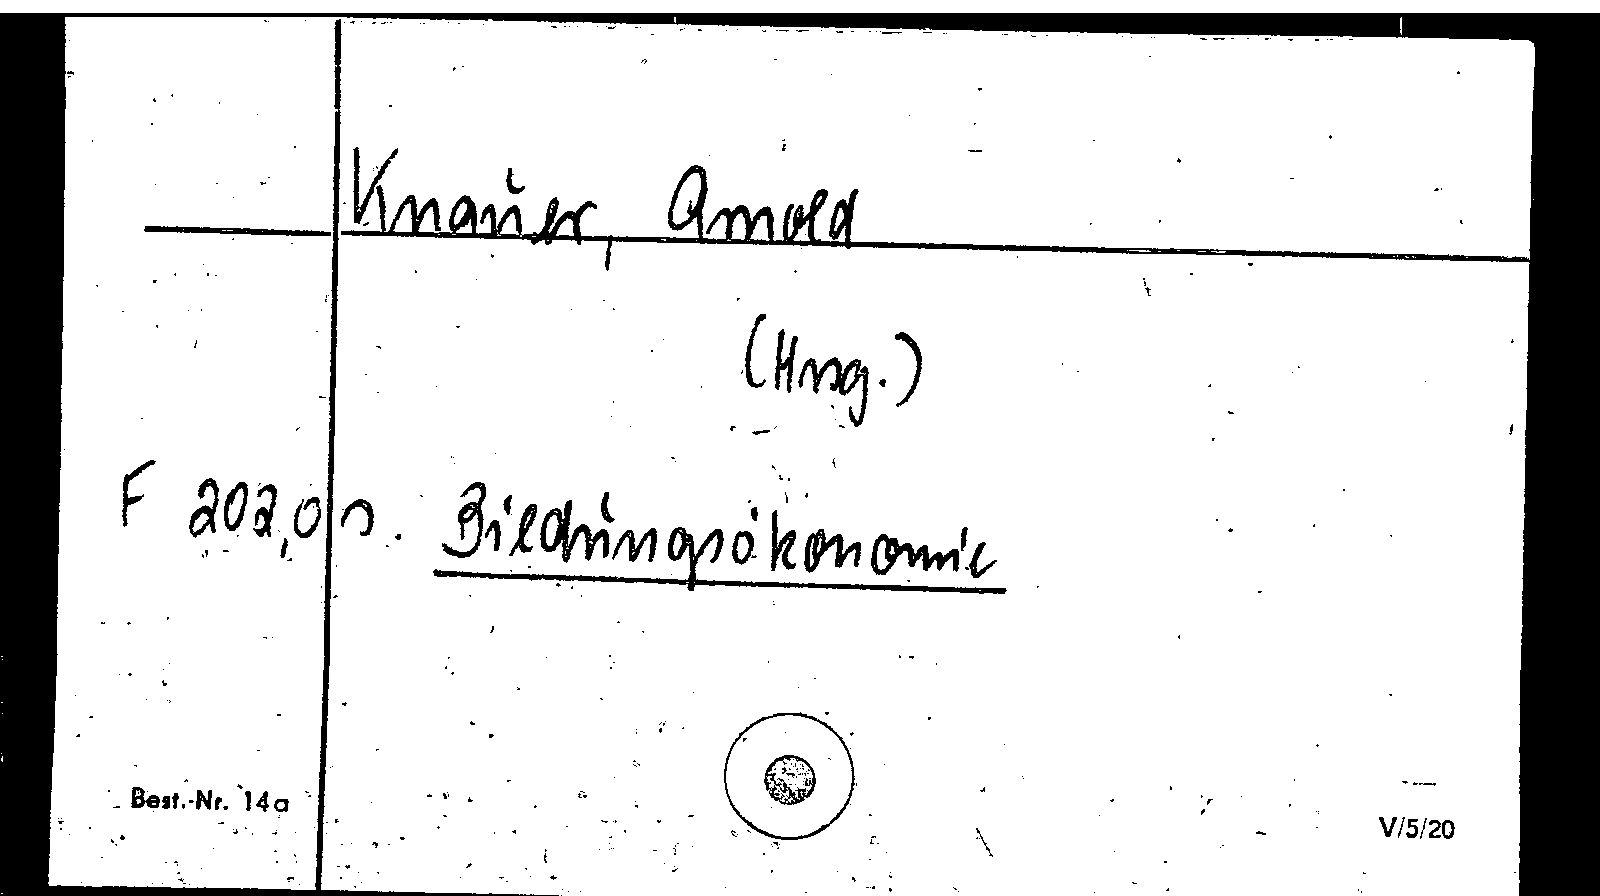 Knauer, Arnold
(Hrsg.)
F 202,0 s. Bildungsökonomie
Best.-Nr. 14a
V/5/20